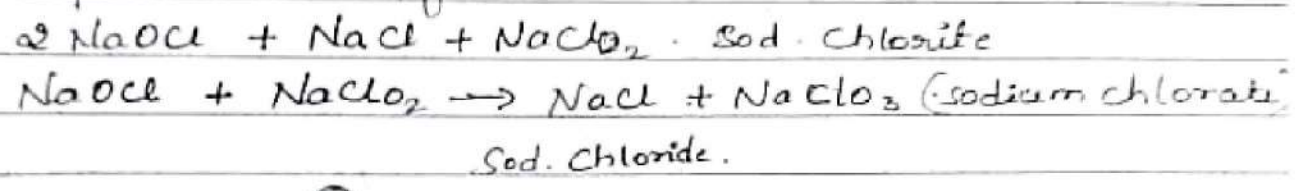 2 NaOCl + NaCl + NaClO₂ . Sod . Chlorite
NaOCl + NaClO₂ → NaCl + NaClO₃ (sodium chlorate
Sod. Chloride .